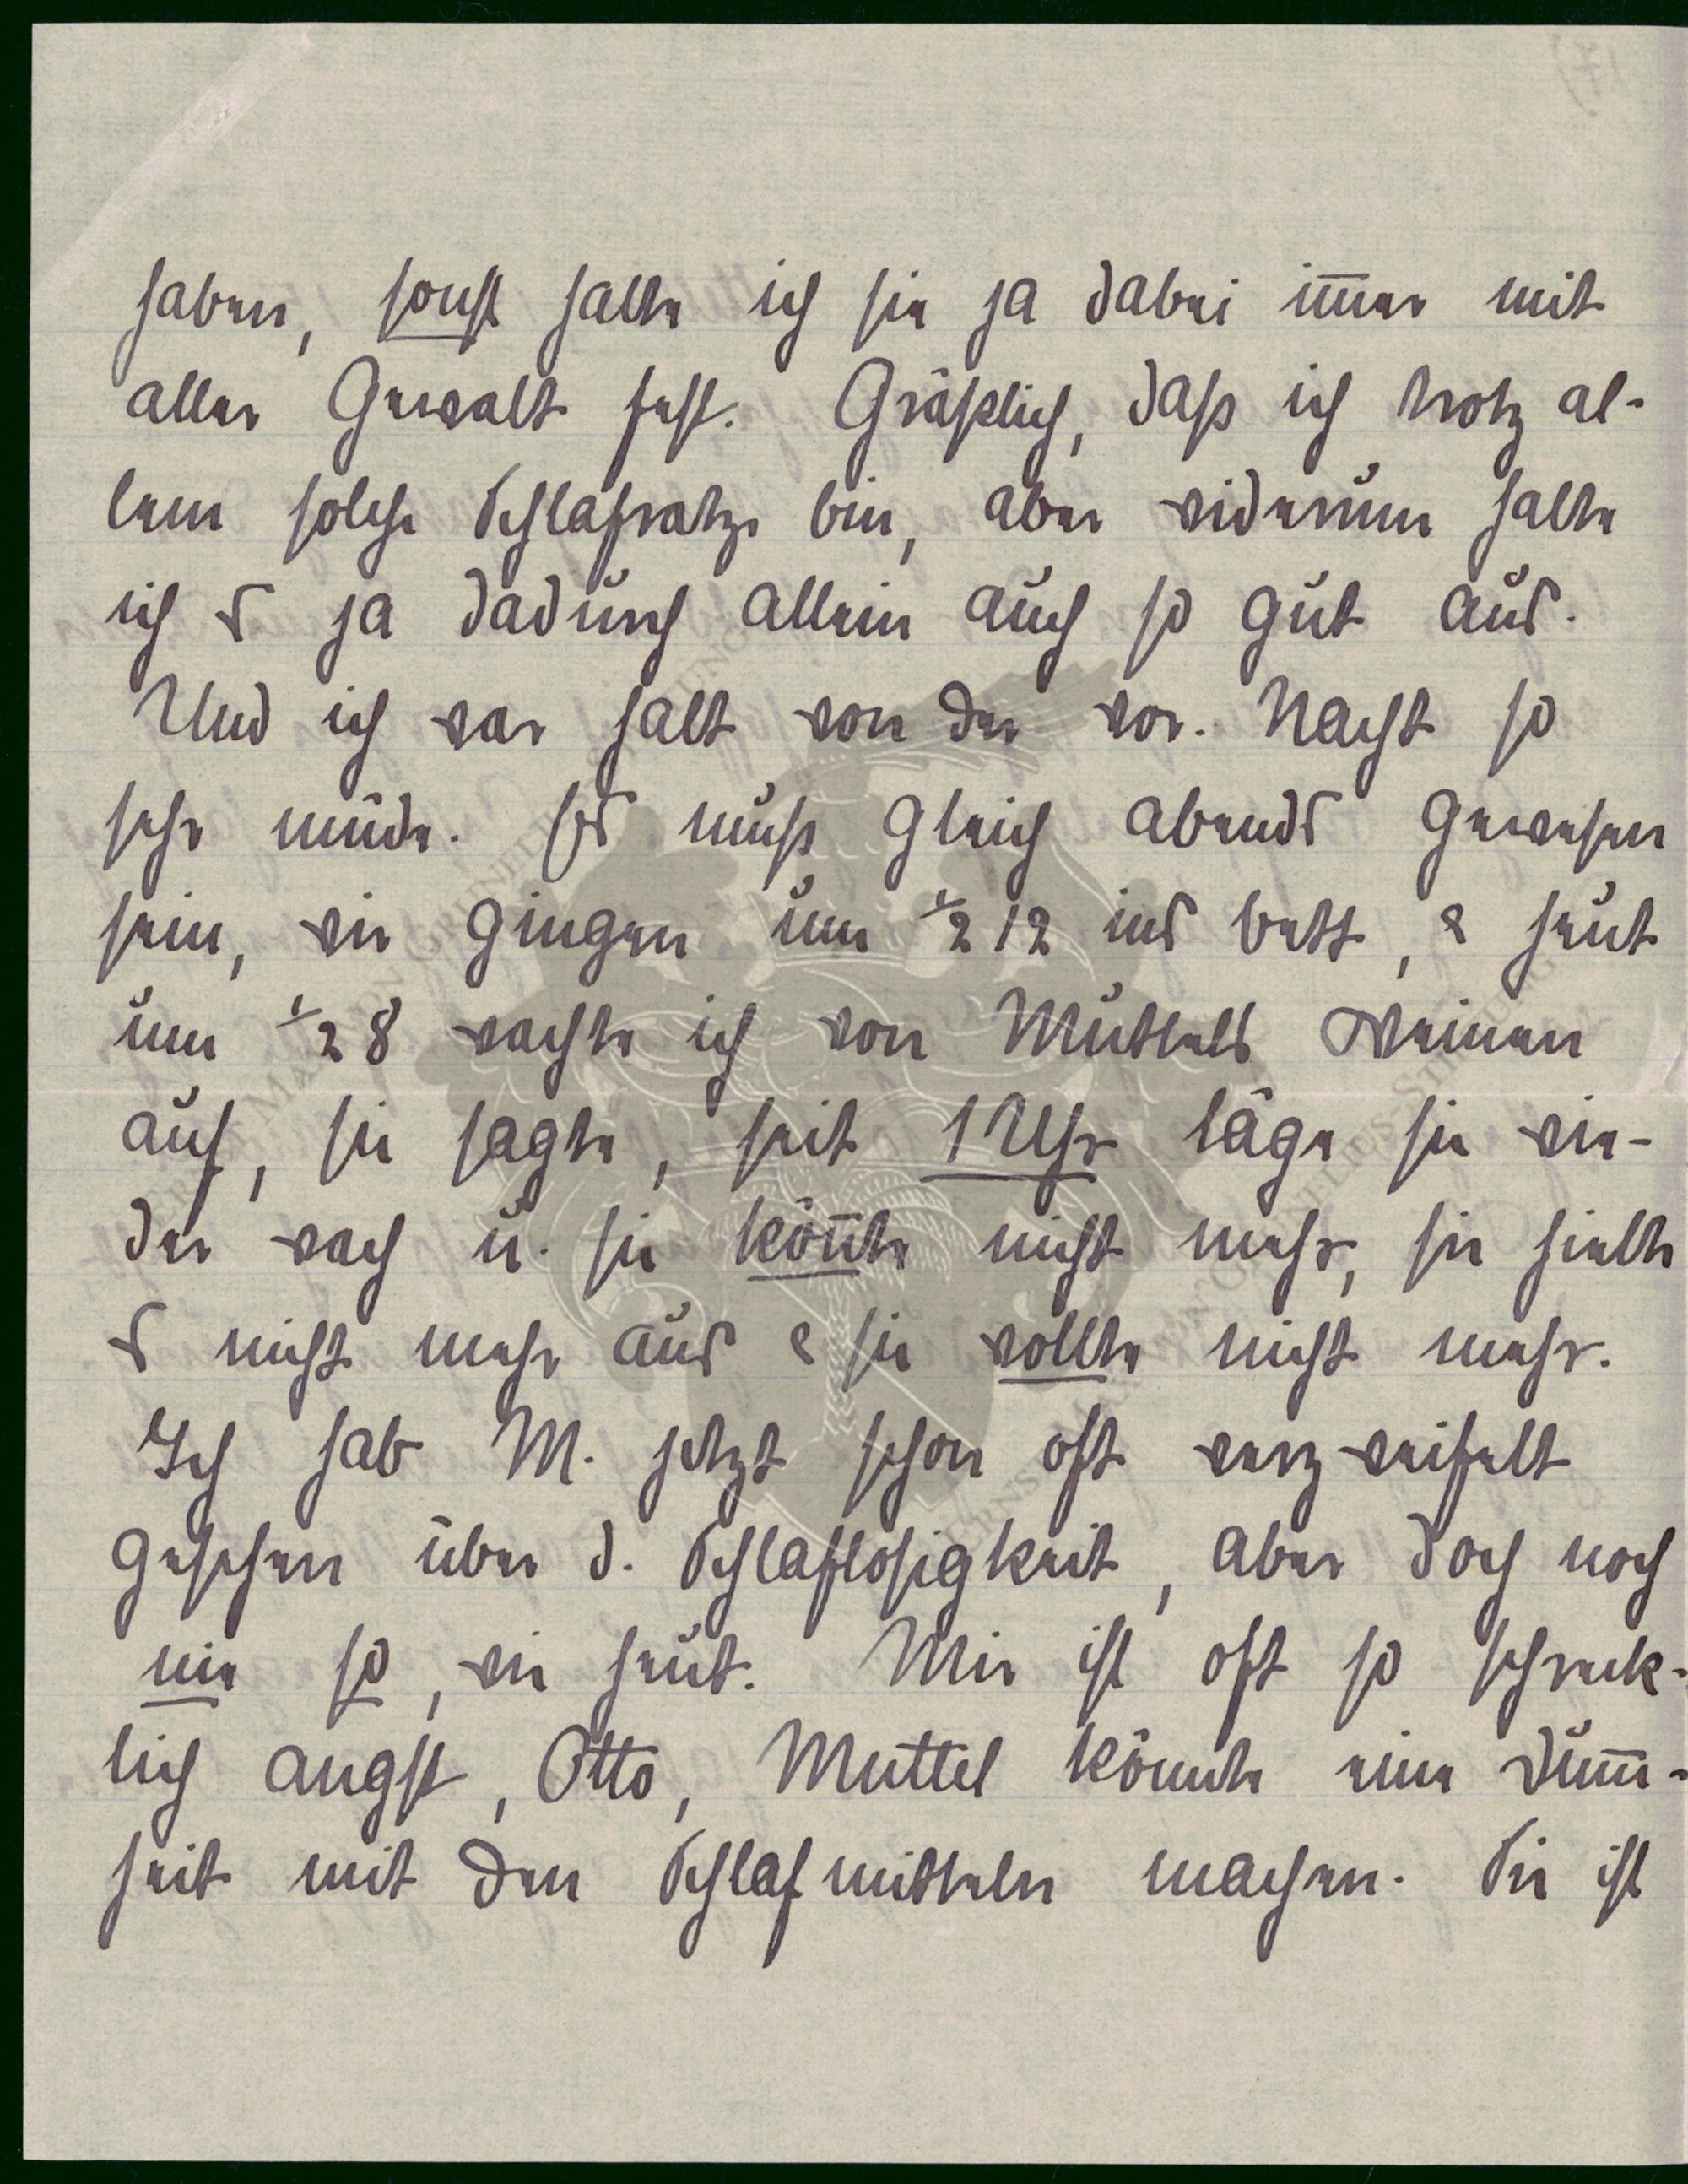 haben, sonst halte ich sie ja dabei im̅er mit
aller Gewalt fest. Gräßlich, daß ich trotz al-
lem solche Schlafratze bin, aber widerum halte
ich s ja dadurch allein auch so gut aus.
Und ich war halt von der vor. Nacht so
sehr müde. Es muß gleich abends gewesen
sein, wir gingen um ½ 12 ins bett, & heut
um ½ 8 wachte ich von Muttels Weinen
auf, sie sagte, seit 1 Uhr läge sie wie-
der wach u. sie kön̅te nicht mehr, sie hielte
s nicht mehr aus & sie wollte nicht mehr.
Ich hab M. jetzt schon oft verzweifelt
gesehen über d. Schlaflosigkeit, aber doch noch
nie so, wie heut. Mir ist oft so schreck-
lich angst, Otto, Muttel könnte eine Dum̅-
heit mit den Schlafmitteln machen. Sie ist